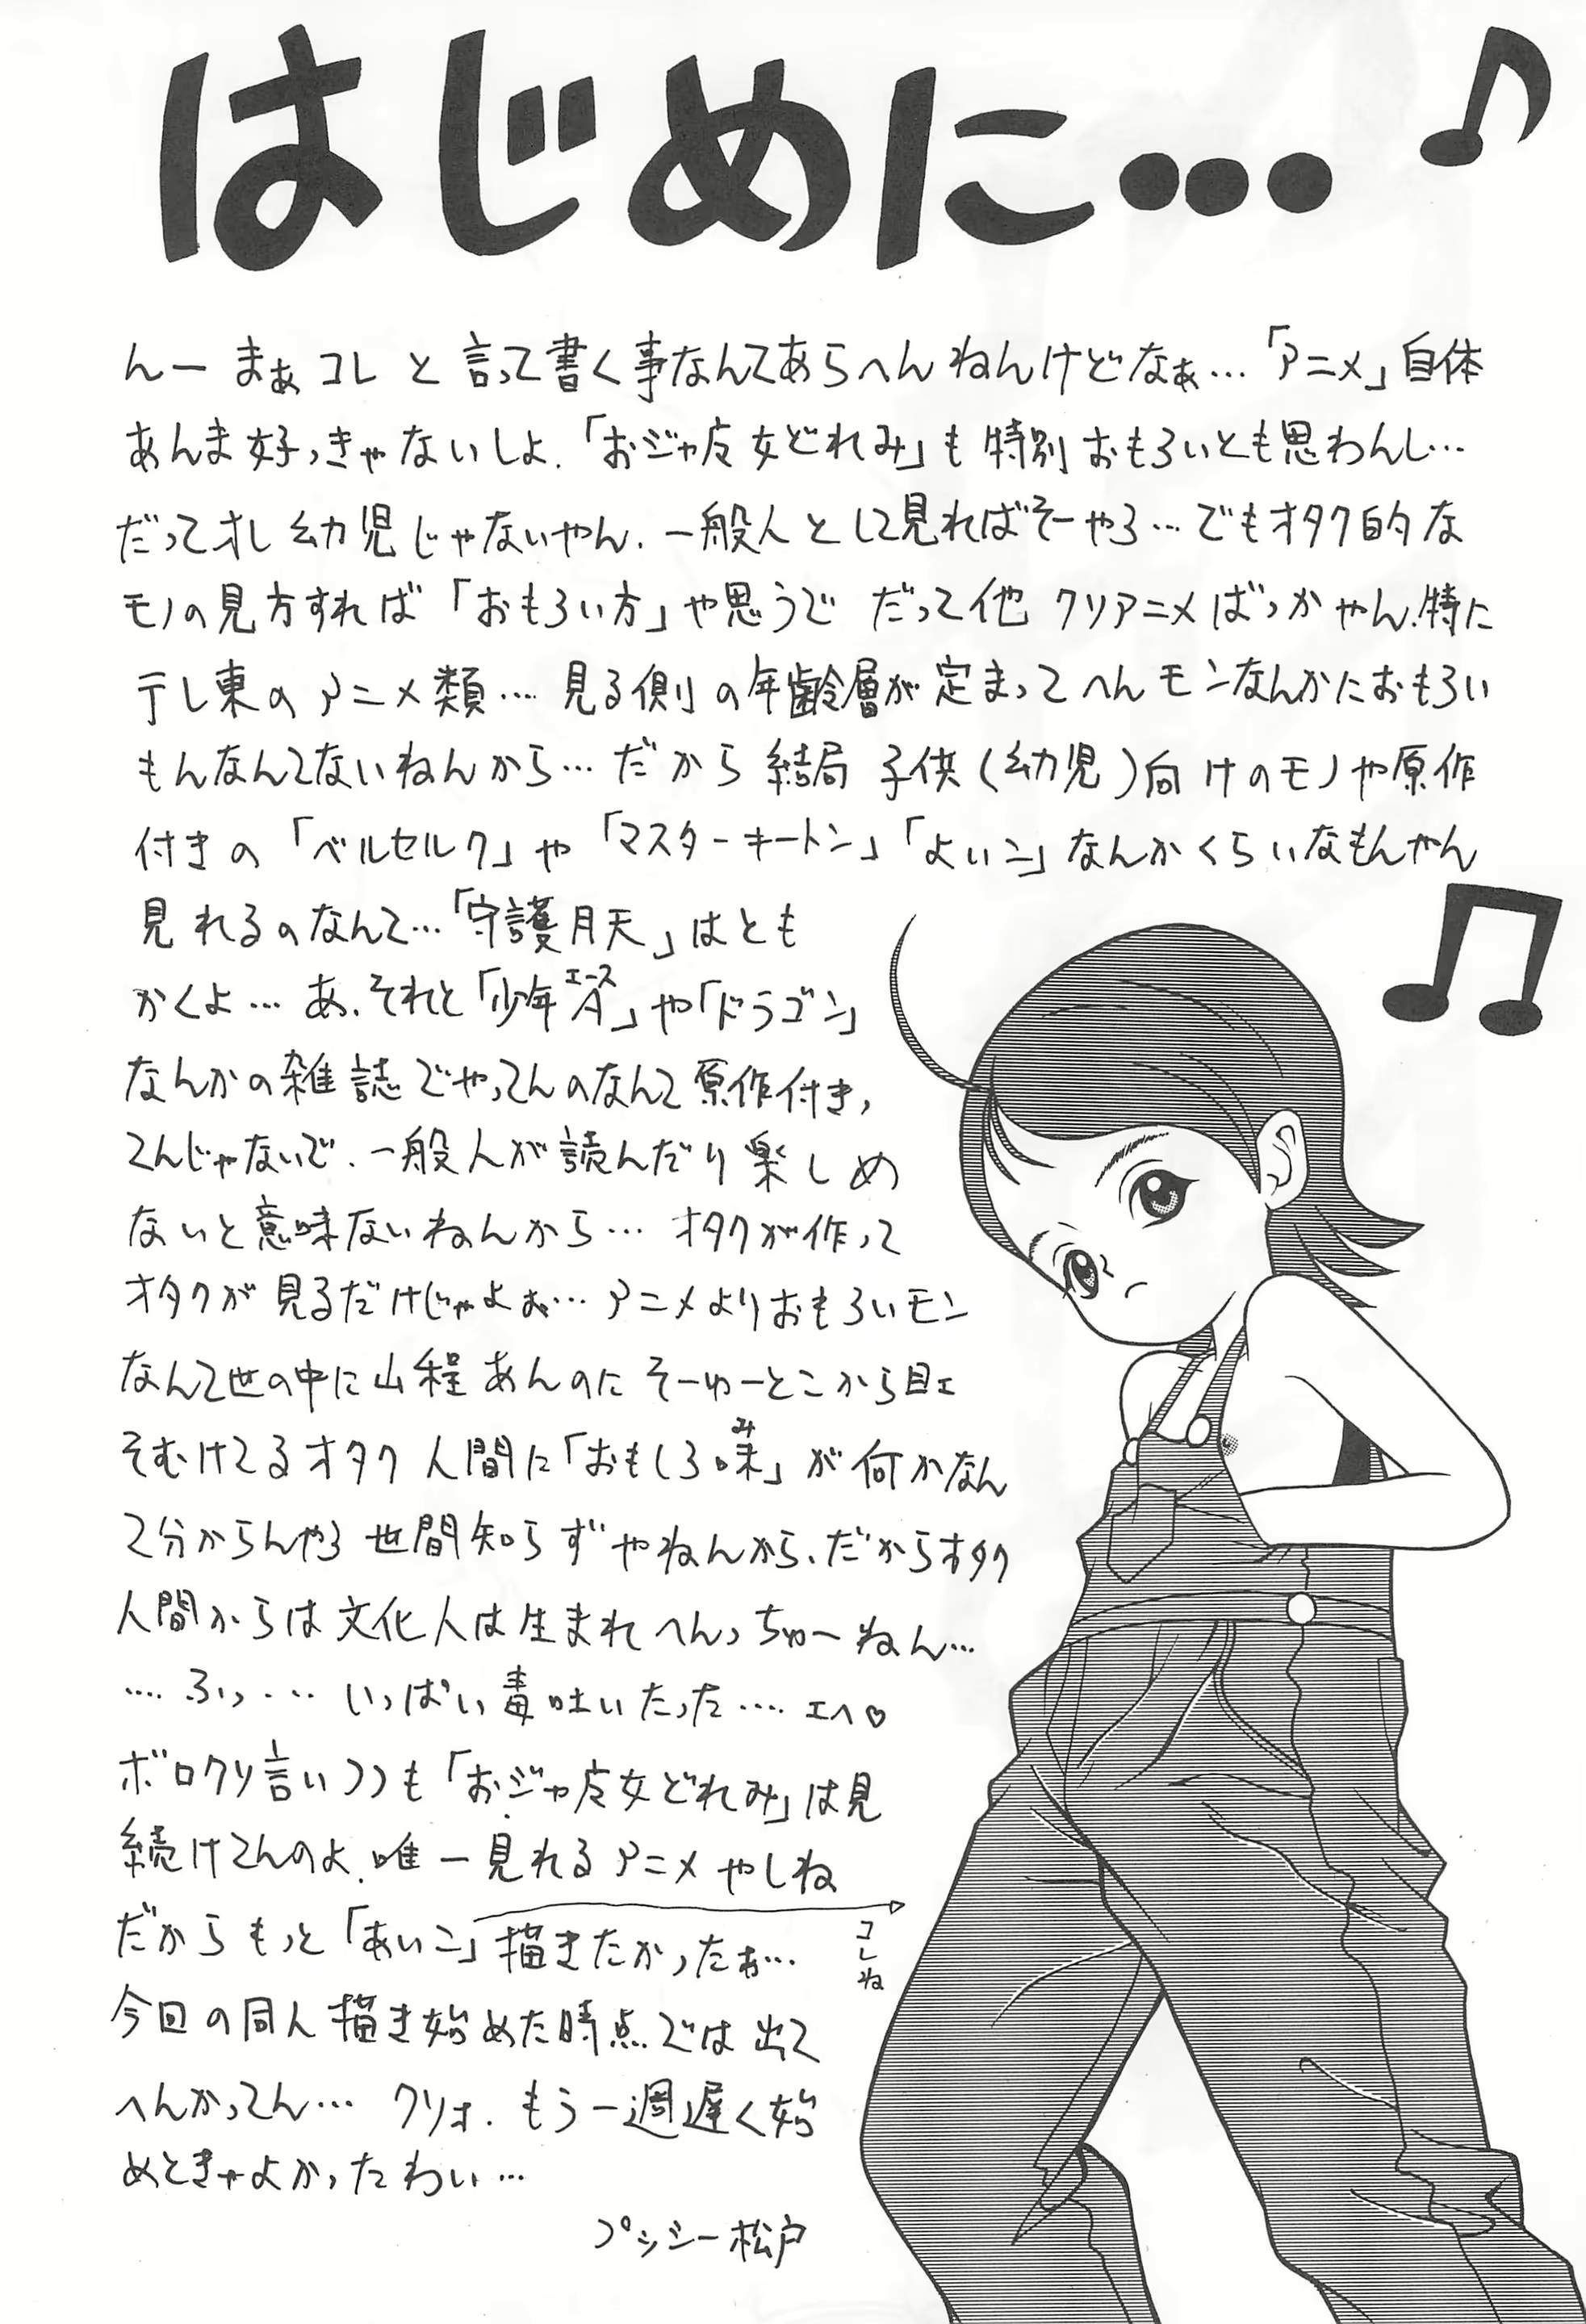 はじめに・・・♪
んー まぁ コレ と 言って書く事なんてあらへんねんけどなぁ…「アニメ」自体
あんま好っきゃないしょ.「おジャ魔女どれみ」も特別おもろいとも思わんし…
だってオレ幼児じゃないやん.一般人として見ればそーやろ…でもオタク的な
モノの見方すれば「おもろい方」や思うで だって他 クソアニメばっかやん.特に
テレ東のアニメ類…. 見る側の年齢層が定まってへんモンなんかにおもろい
もんなんてないねんから…だから結局 子供(幼児)向けのモノや原作
付きの「ベルセルク」や「マスターキートン」「よいこ」なんかくらいなもんやん
見れるのなんて…「守護月天」はとも
かくよ… あ、それと「少年A」や「ドラゴン」
エース
なんかの雑誌でやってんのなんて原作付き,
てんじゃないで、一般人が読んだり楽しめ
ないと意味ないねんから… オタクが作って
オタクが見るだけじゃよぉ… アニメよりおもろいモン
なんて世の中に山程あんのに そーゆーとこから目ェ
そむけてるオタク人間に「おもしろ味」が何かなん
み
て分からんやろ 世間知らずやねんから、だからオタク
人間からは文化人は生まれへんっちゅーねん…
…. ふっ … いっぱい毒吐いたった…. エヘ♡
ボロクソ言いつつも「おジャ魔女どれみ」は見
続けてんのよ.唯一見れるアニメやしね
だからもっと「あいこ」描きたかったぉ…
コレね
今回の同人描き始めた時点では出て
へんかってん… クソォ.もう一週遅く始
めときゃよかったわい…
プッシー松戸